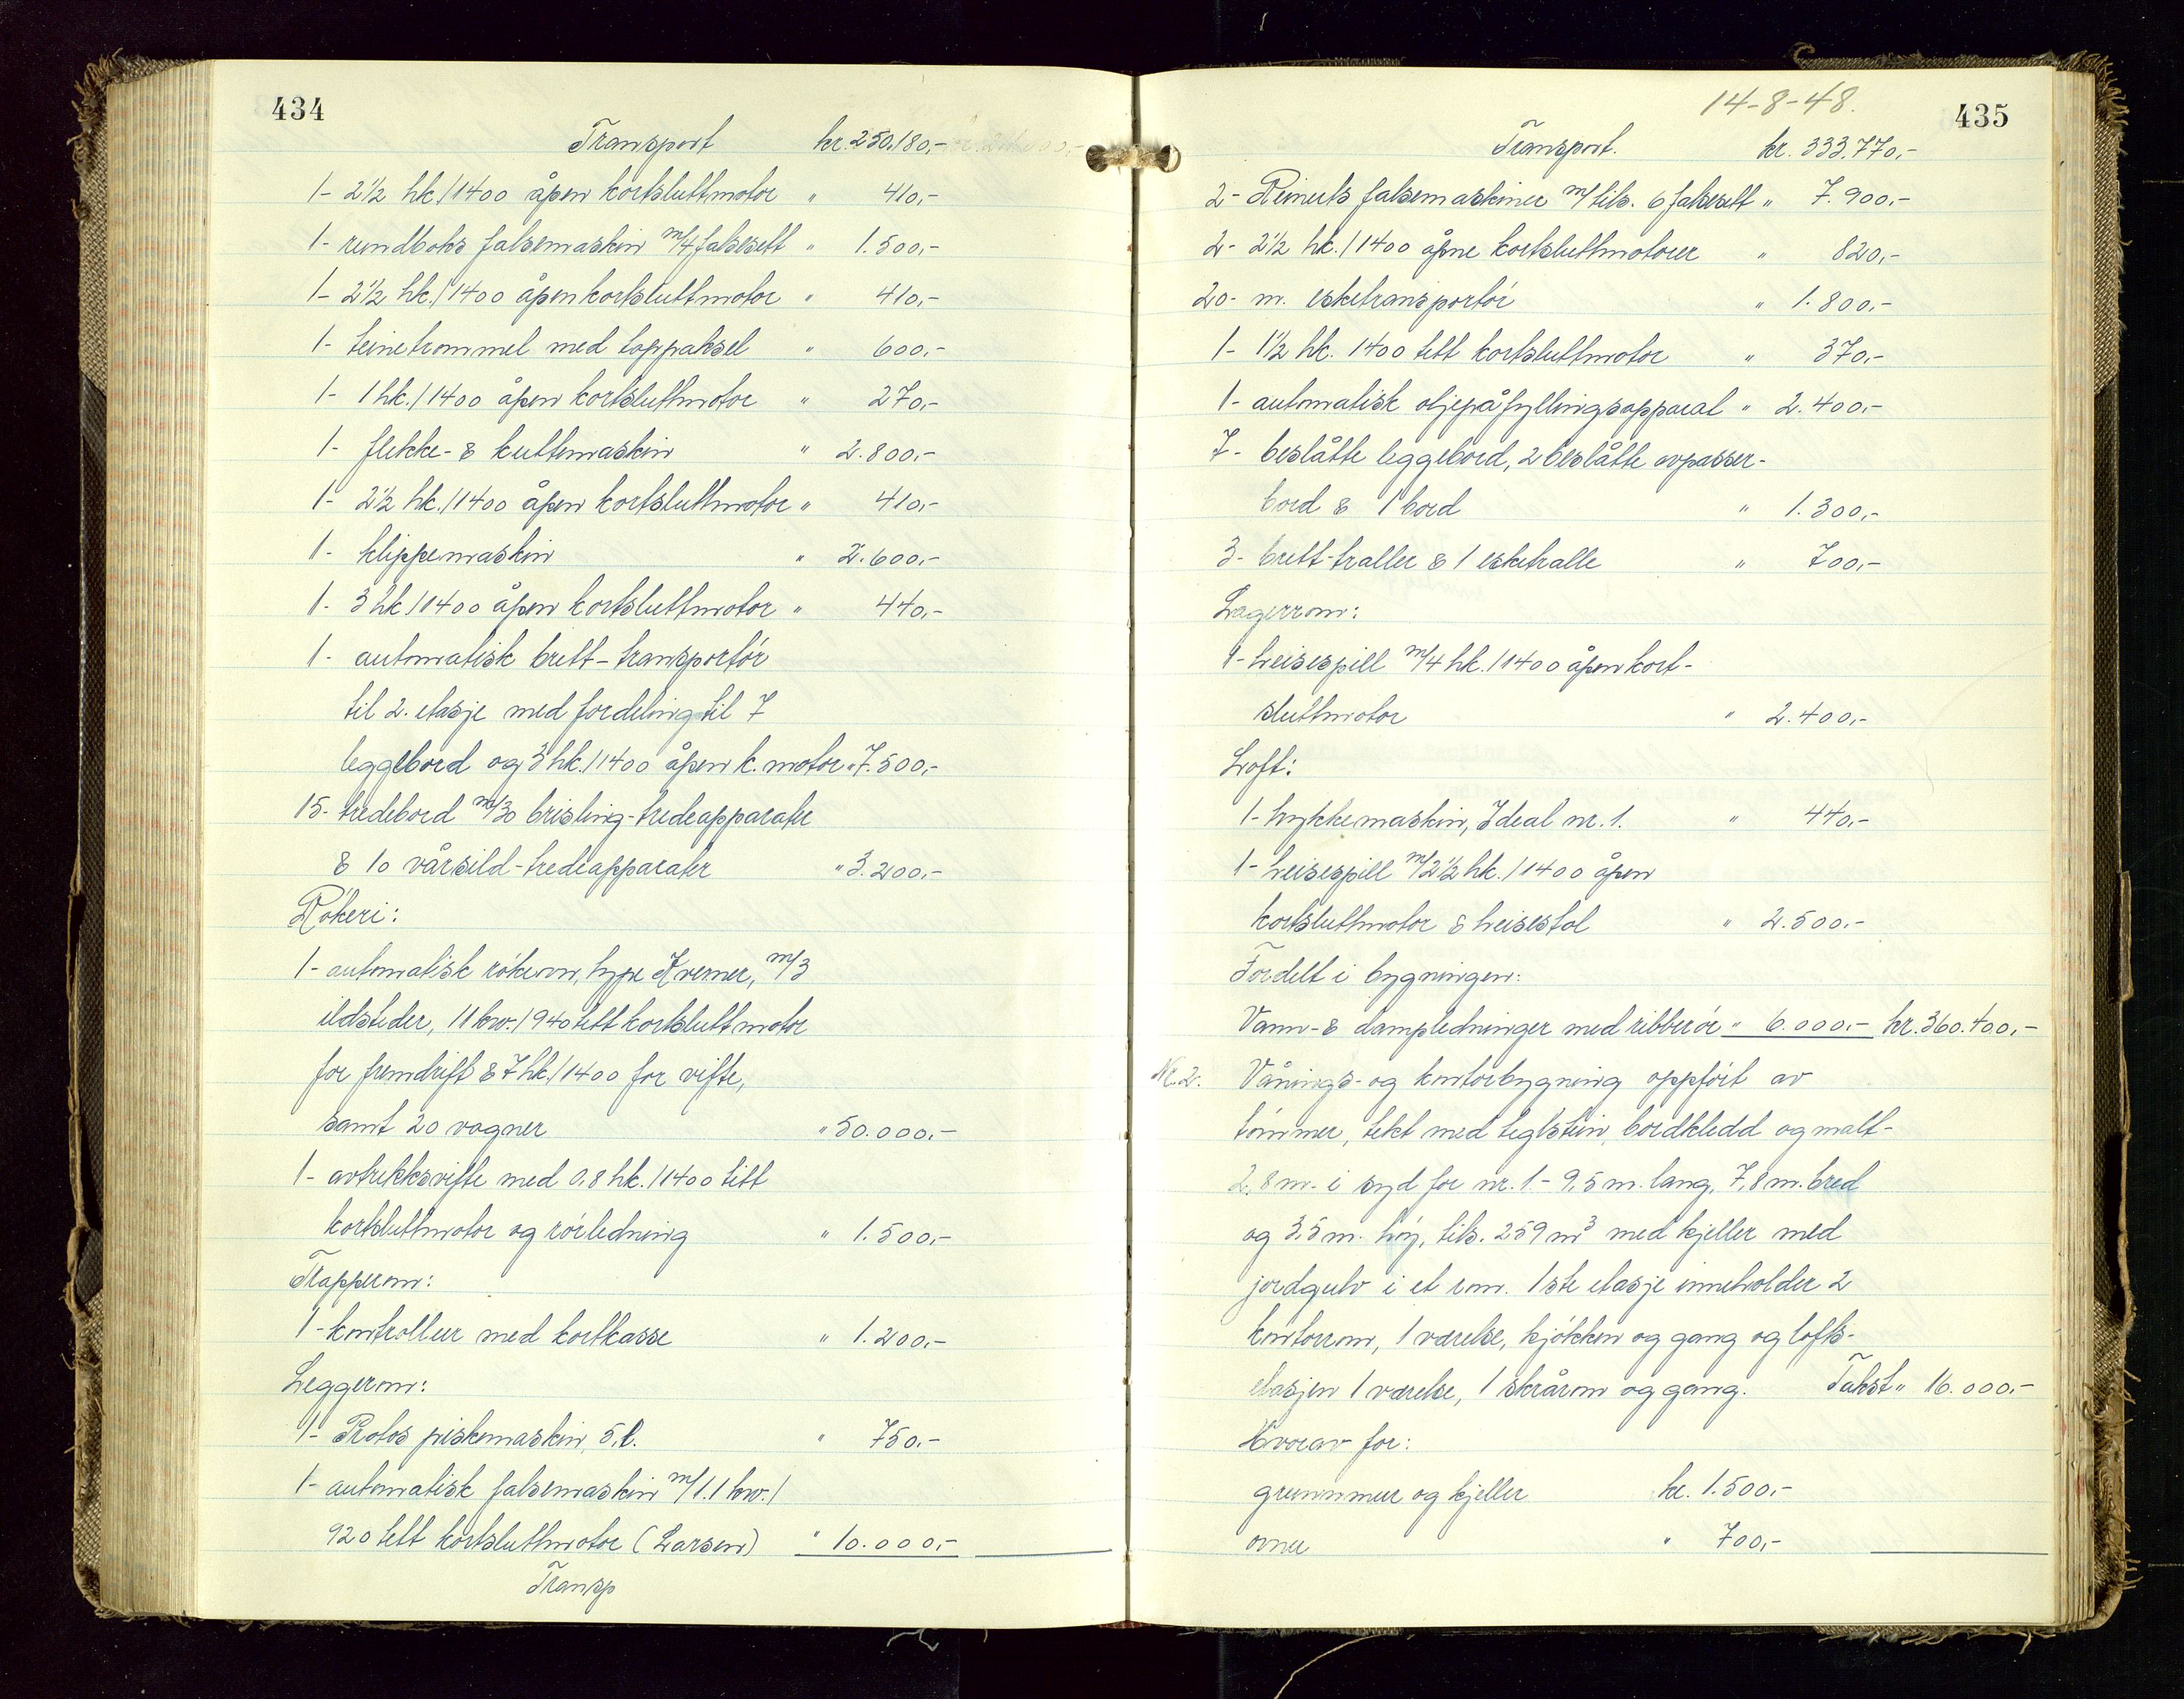 434
Transport kr. 250.180,-
1- 2½ hk./1400 åpen kortsluttmotor " 410,-
1- rundboks falsemaskin m/4 falsesett " 1.500,-
1- 2½ hk./1400 åpen kortsluttmotor " 410,-
1- teinetrommel med toppaksel " 600,-
1- 1 hk./1400 åpen kortsluttmotor " 270,-
1- flekke- & kuttemaskin " 2.800,-
1- 2½ hk./1400 åpen kortsluttmotor " 410,-
1- klippemaskin " 2.600,-
1- 3 hk/1400 åpen kortsluttmotor " 440,-
1- automatisk brett-transportör
til 2. etasje med fordeling til 7
leggebord og 3 hk./1400 åpen k. motor " 7.500,-
15- tredebord m/30 brisling-tredeapparater
& 10 vårsild-tredeapparater " 3.200,-
Rökeri:
1- automatisk rökeovn, type Kverner, m/3
ildsteder, 11 kw./940 tett kortsluttmotor
for fremdrift & 7 hk./1400 for vifte,
samt 20 vogner " 50.000,-
1- avtrekksvifte med 0,8 hk./1400 tett
kortsluttmotor og rörledning " 1.500,-
Trapperom:
1- kontrollur med kortkasse " 1.200,-
Leggerom:
1- Protos piskemaskin, 5. l. " 750,-
1- automatisk falsemaskin m/1.1 kw./
920 tett kortsluttmotor (Larsen) " 10.000,-
Transp
14-8-48.
435
Transport. kr. 333.770,-
2- Reinerts falsemaskiner m/tils. 6 falsesett " 7.900,-
2- 2½ hk./1400 åpne kortsluttmotorer " 820,-
20- m. esketransportör " 1.800,-
1- 1½ hk. 1400 tett kortsluttmotor " 370,-
1- automatisk oljepåfyllingsapparat " 2.400,-
7- beslåtte leggebord, 2 beslåtte avpasser-
bord & 1 bord " 1.300,-
3- brett-traller & 1 esketralle " 700,-
Lagerrom:
1- heisespill m/4 hk./1400 åpen kort-
sluttmotor " 2.400,-
Loft:
1- trykkemaskin, Ideal nr. 1. " 440,-
1- heisespill m/2½ hk./1400 åpen
kortsluttmotor & heisestol " 2.500,-
Fordelt i bygningen:
Vann- & dampledninger med ribberör " 6.000,- kr. 360.400,-
Nr. 2. Vånings- og kontorbygning oppfört av
tömmer, tekt med teglstein, bordkledd og malt-
2,8 m. i syd for nr. 1- 9,5 m. lang, 7,8 m. bred
og 3,5 m. höy, tils. 259 m³ med kjeller med
jordgulv i et rom. 1ste etasje inneholder 2
kontorrom, 1 værelse, kjökken og gang og lofts-
etasjen 1 værelse, 1 skrårom og gang. Takst " 16.000,-
Hvorav for:
grunnmur og kjeller kr. 1.500,-
ovner " 700,-